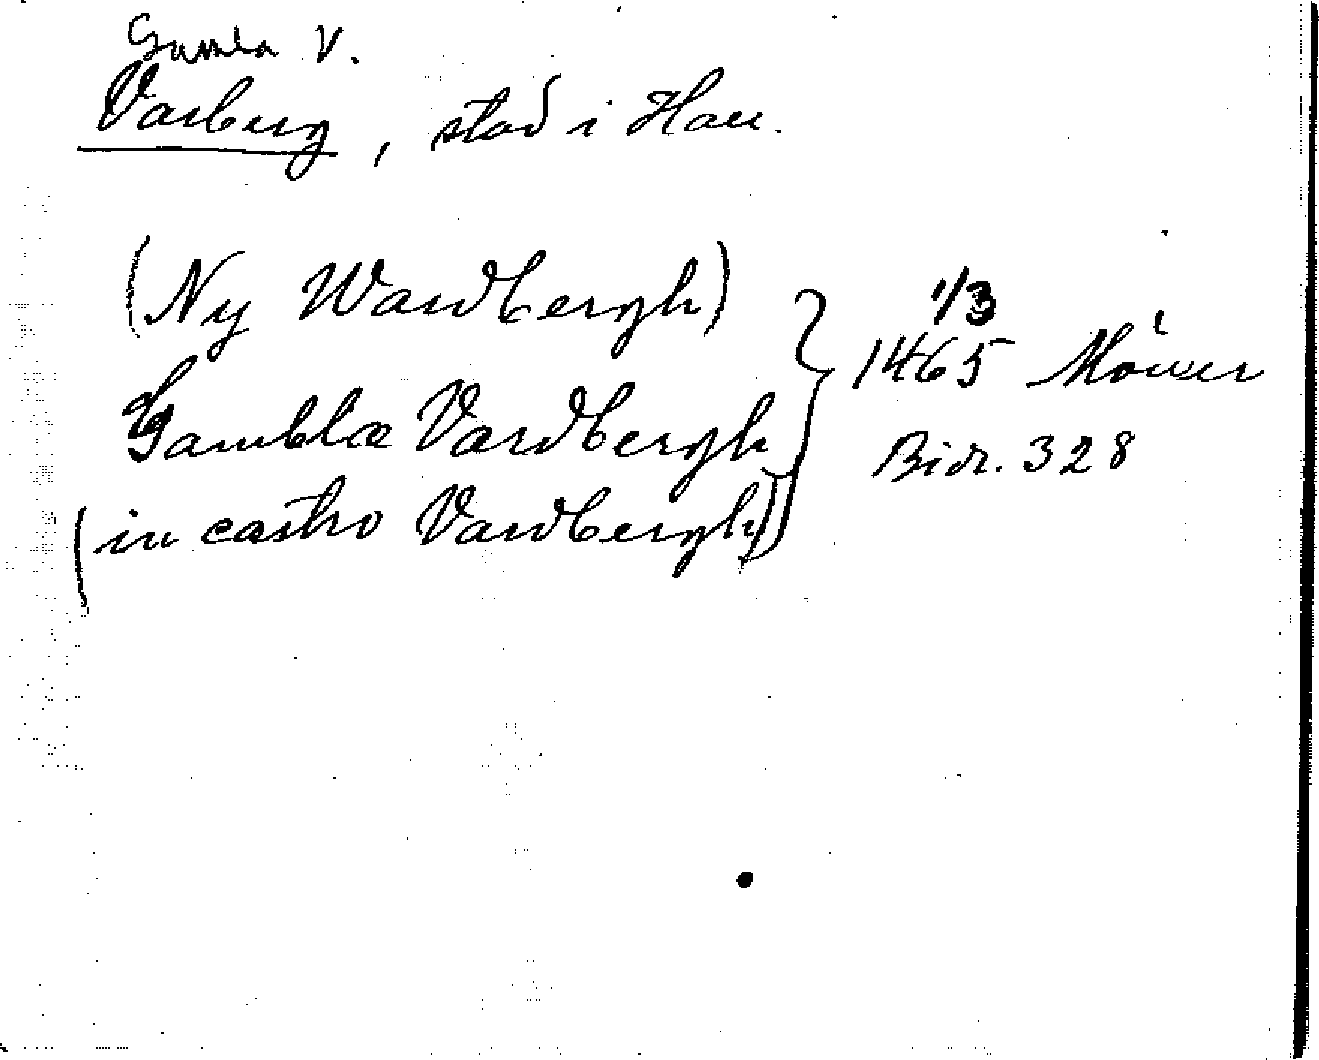 Gamla V.
Varberg, stad i Hall.
(Ny Wardbergh)
1/3
1465
Gamblæ Vardbergh
Bidr. 328
(in castro Vardbergh)